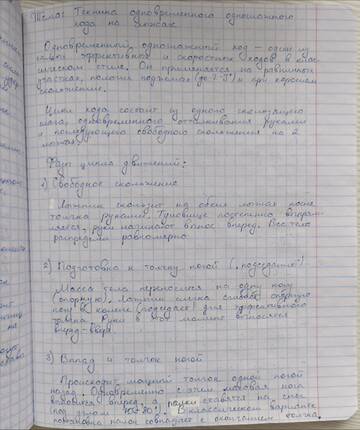 Тема: Техника одновременного одношажного
хода на лыжах
Одновременный одношажный ход – один из
самых эффективных и скоростных ходов в клас-
сическом стиле. Он применяется на равнинных
участках, пологих подъемах (до 2-3°) и при хорошем
скольжении.
Цикл хода состоит из одного скользящего
шага, одновременного отталкивания руками
и последующего свободного скольжения на 2
лыжах.
Фазы цикла движений:
1) Свободное скольжение
Лыжник скользит на обеих лыжах после
толчка руками. Туловище постепенно выпрям-
ляется, руки начинают вынос вперед. Вес тела
распределен равномерно
2) Подготовка к толчку ногой ("подседание")
Масса тела переносится на одну ногу
(опорную). Лыжник слегка сгибает опорную
ногу в колене (подседает) для эффективного
толчка. Руки в этот момент выносятся
вперед-вверх.
3) Выпад и толчок ногой
Происходит мощный толчок одной ногой
назад. Одновременно с этим маховая нога
выносится вперед, а палки ставятся на снег
(под углом). В классическом варианте
постановка палок совпадает с окончанием толчка.